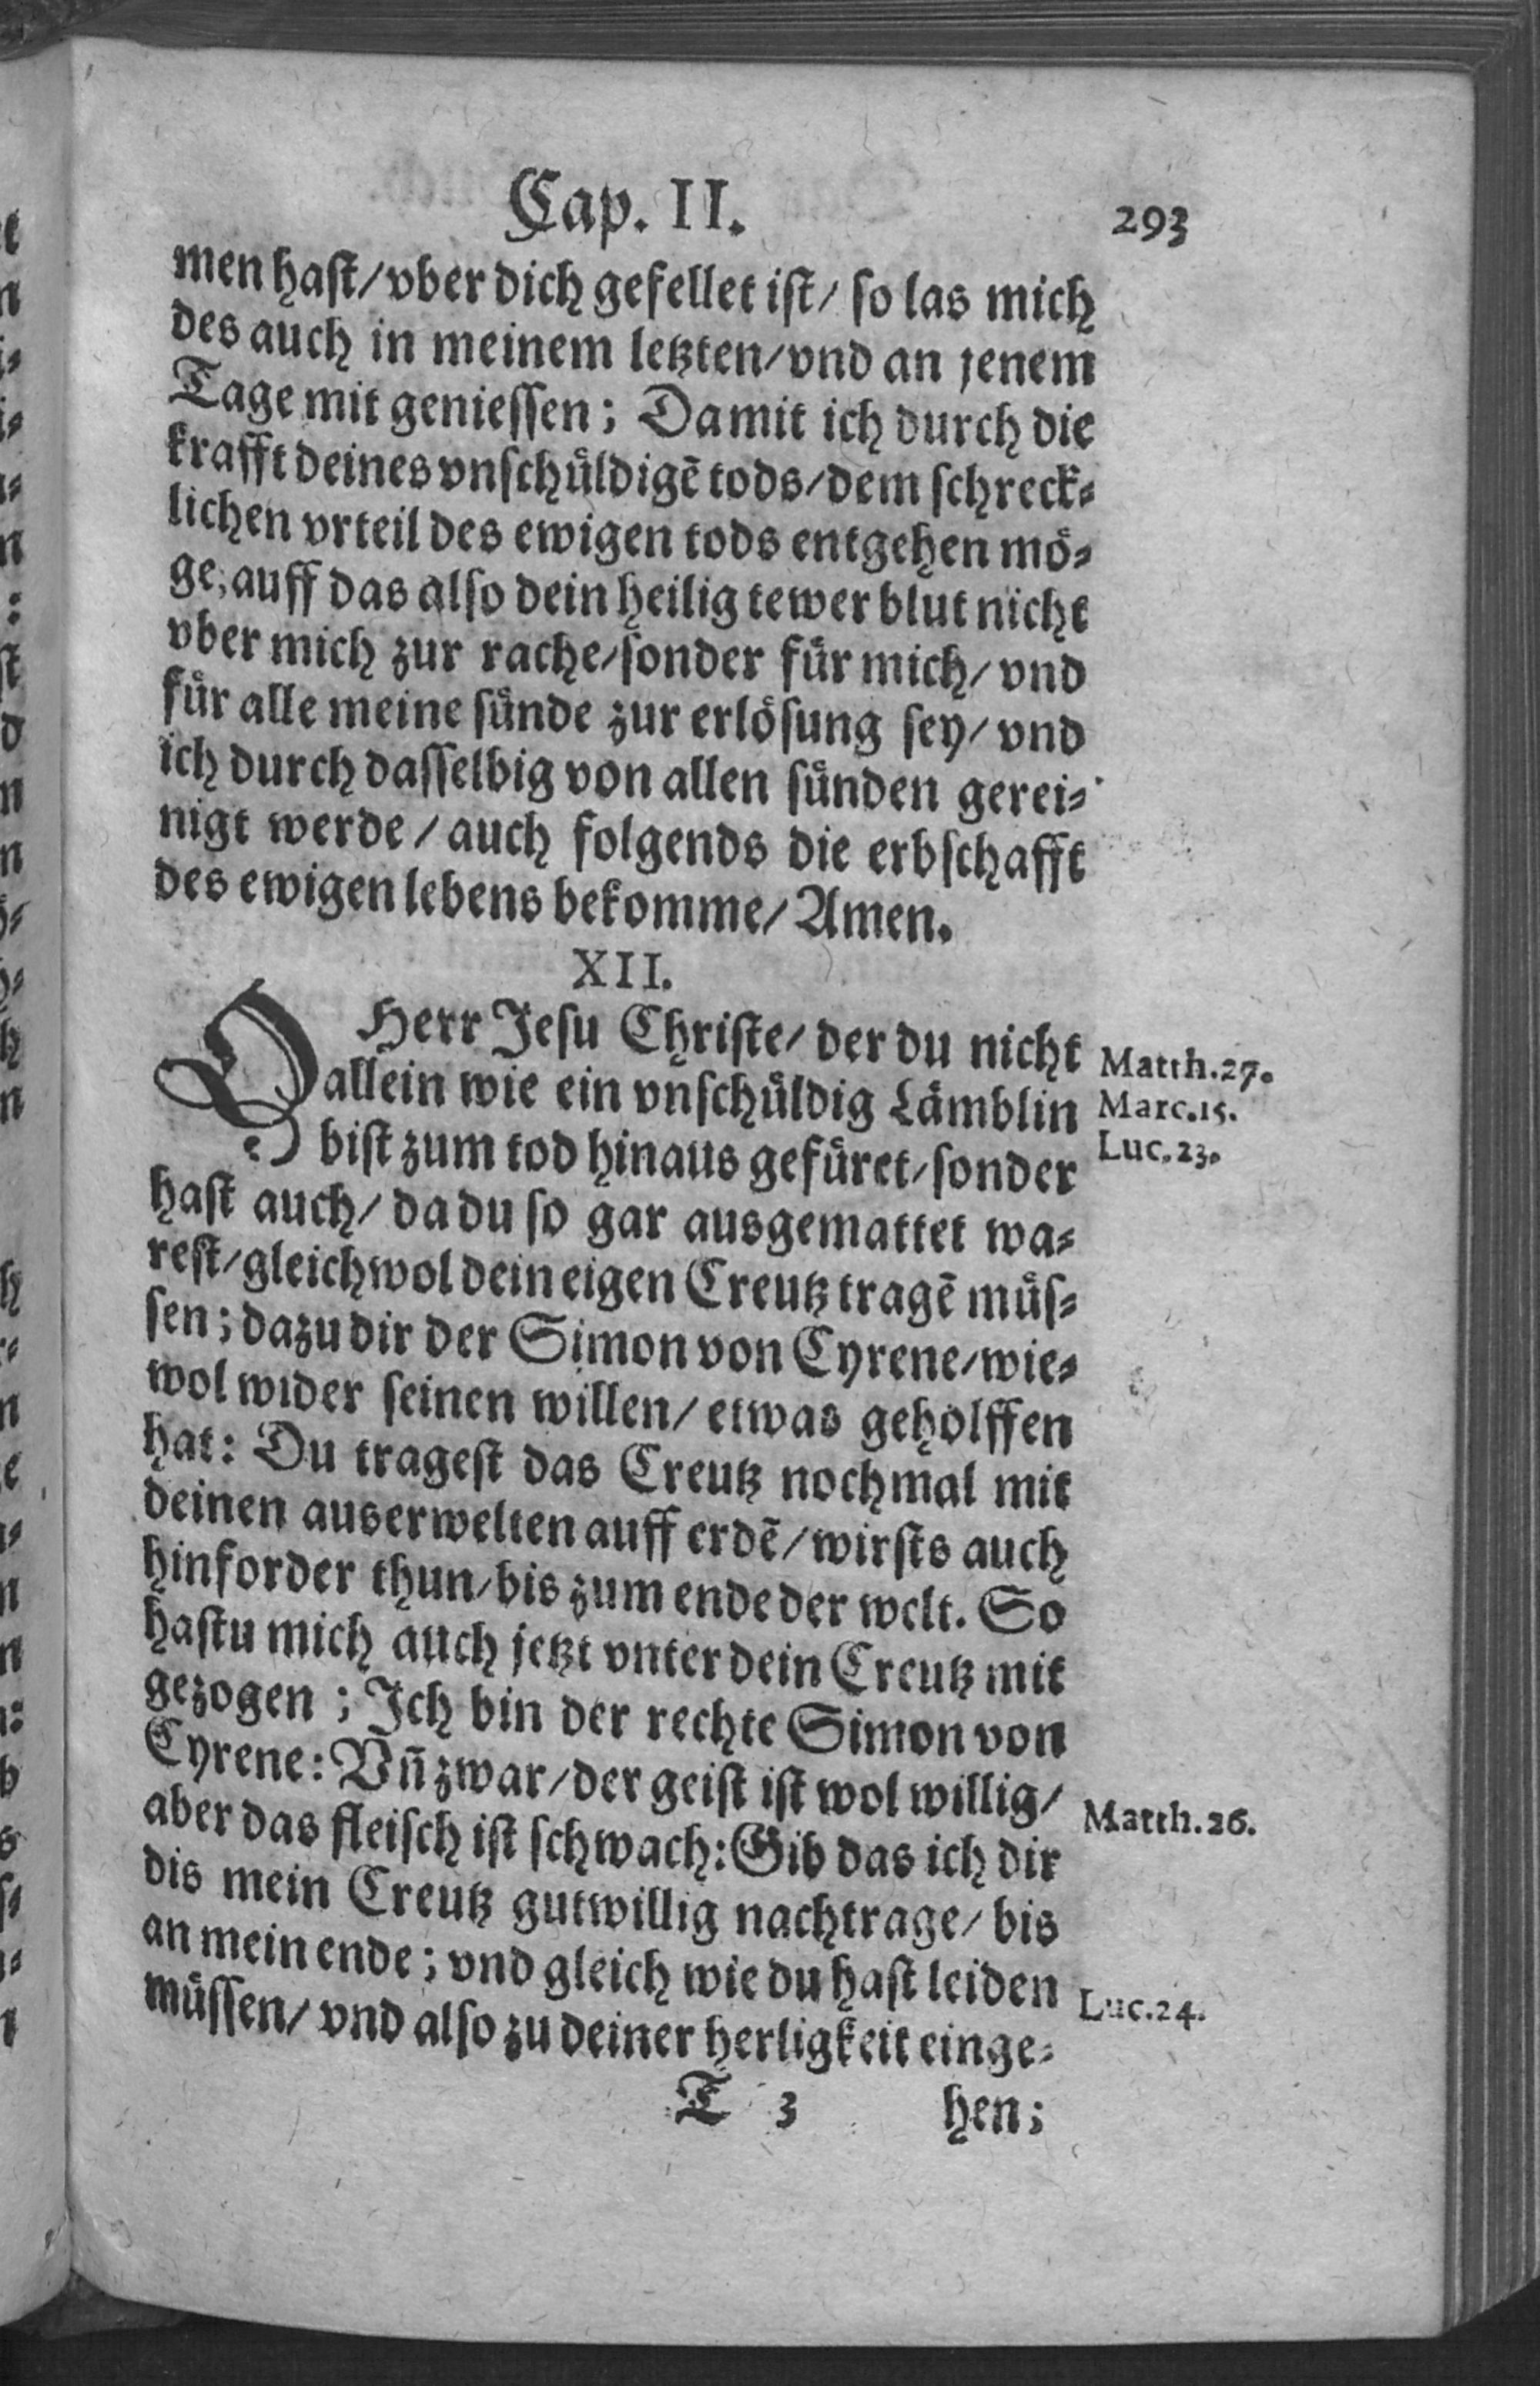 Cap. II. 293
men haſt/ vber dich gefellet iſt/ ſo las mich
des auch in meinem letzten/ vnd an jenem
Tage mit genieſſen; Damit ich durch die
krafft deines vnſchuͤldigē tods/ dem ſchreck⸗
lichen vrteil des ewigen tods entgehen moͤ⸗
ge, auff das alſo dein heilig tewer blut nicht
vber mich zur rache/ ſonder fuͤr mich/ vnd
fuͤr alle meine ſuͤnde zur erloͤſung ſey/ vnd
ich durch daſſelbig von allen ſuͤnden gerei⸗
nigt werde/ auch folgends die erbſchafft
des ewigen lebens bekomme/ Amen.
XII.
O Herr Jeſu Chriſte/ der du nicht
allein wie ein vnſchuͤldig Laͤmblin
biſt zum tod hinaus gefuͤret/ ſonder
haſt auch/ da du ſo gar ausgemattet wa⸗
reſt/ gleichwol dein eigen Creutz tragē muͤſ⸗
ſen; dazu dir der Simon von Cyrene/ wie⸗
wol wider ſeinen willen/ etwas geholffen
hat: Du trageſt das Creutz nochmal mit
deinen auserwelten auff erdē/ wirſts auch
hinforder thun/ bis zum ende der welt. So
haſtu mich auch jetzt vnter dein Creutz mit
gezogen; Ich bin der rechte Simon von
Cyrene: Vn̄ zwar/ der geiſt iſt wol willig/
aber das fleiſch iſt ſchwach: Gib das ich dir
dis mein Creutz gutwillig nachtrage/ bis
an mein ende; vnd gleich wie du haſt leiden
muͤſſen/ vnd alſo zu deiner herligkeit einge⸗
T 3 hen;
Matth.27.
Marc.15.
Luc.23.
Matth.26.
Luc.24.